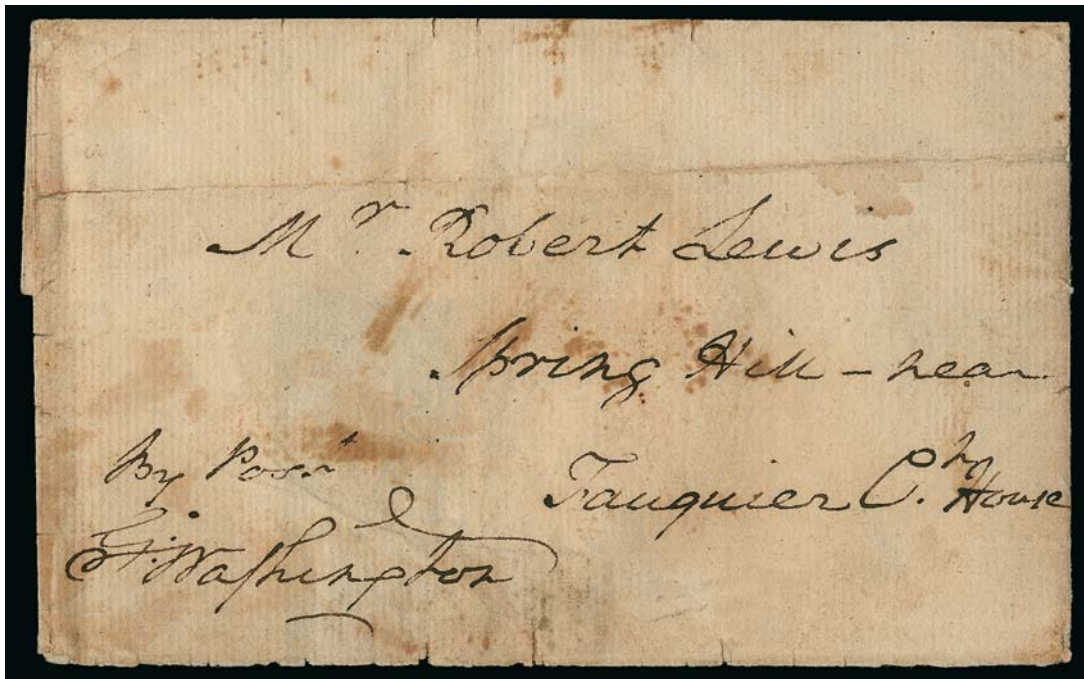 Mr. Robert Lewis
Spring Hill – near
Fauquier Ct. House
By Post
G:Washington